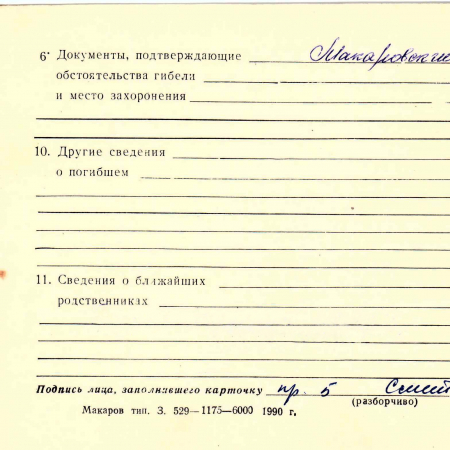 6· Документы, подтверждающие Макаровские
обстоятельства гибели
и место захоронения
10. Другие сведения
о погибшем
11. Сведения о ближайших
родственниках
Подпись лица, заполнявшего карточку пр. 5
(разборчиво)
Макаров тип. З. 529—1175—6000 1990 г.